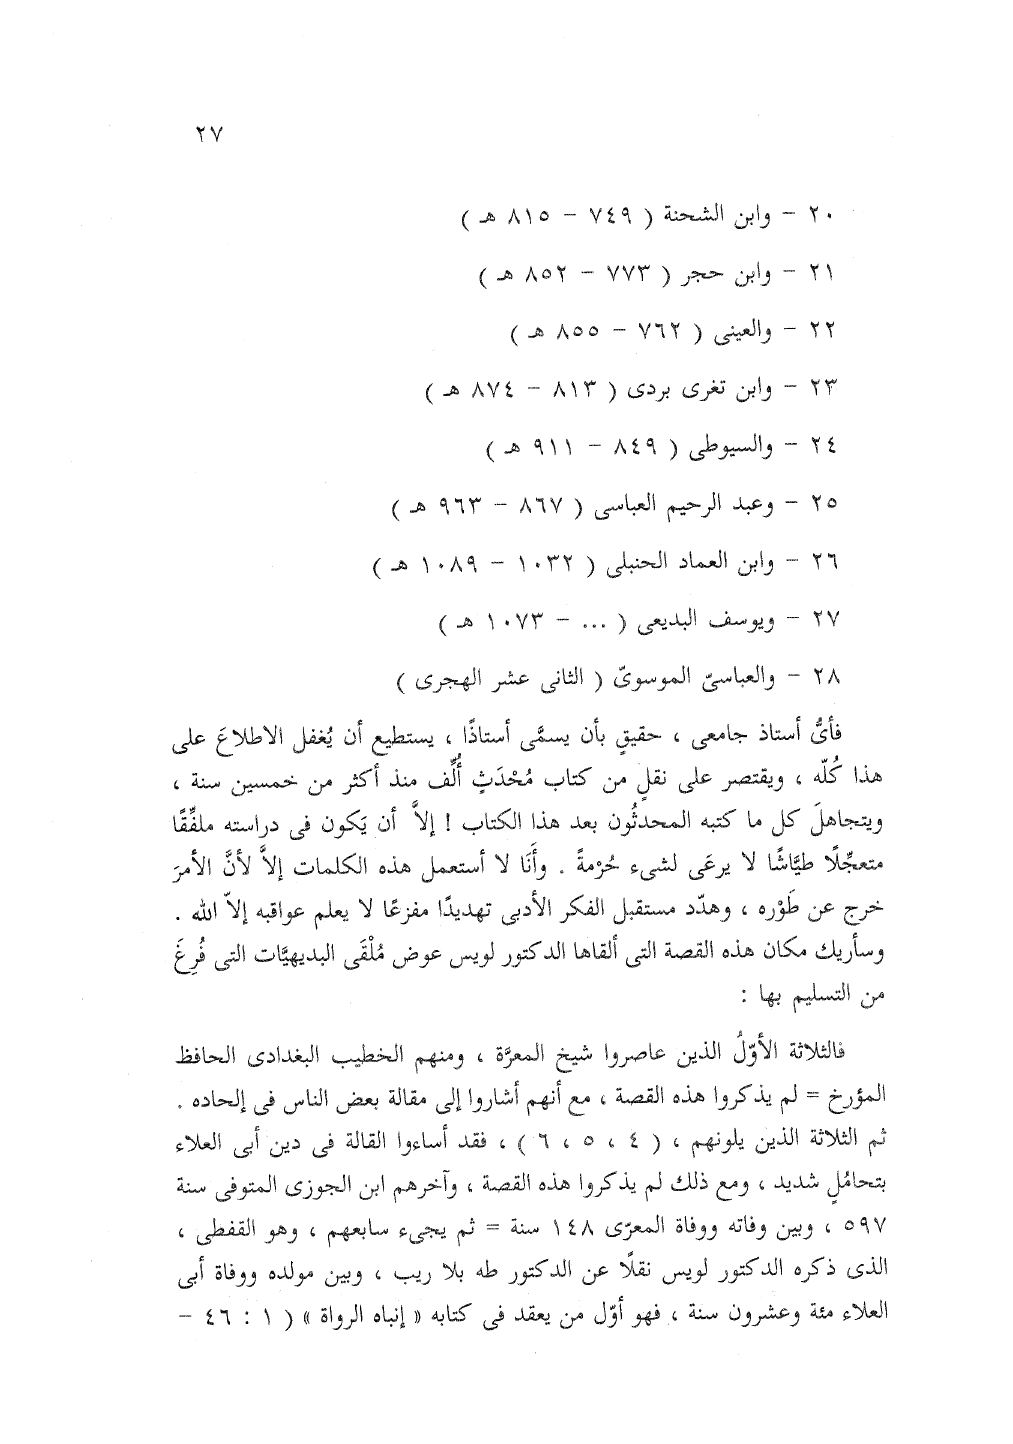 ٢٧
٢٠ – وابن الشحنة ( ٧٤٩ – ٨١٥ هـ )
٢١ – وابن حجر ( ٧٧٣ – ٨٥٢ هـ )
٢٢ – والعينى ( ٧٦٢ – ٨٥٥ هـ )
٢٣ – وابن تغرى بردى ( ٨١٣ – ٨٧٤ هـ )
٢٤ – والسيوطى ( ٨٤٩ – ٩١١ هـ )
٢٥ – وعبد الرحيم العباسى ( ٨٦٧ – ٩٦٣ هـ )
٢٦ – وابن العماد الحنبلى ( ١٠٣٢ – ١٠٨٩ هـ )
٢٧ – ويوسف البديعى ( ... – ١٠٧٣ هـ )
٢٨ – والعباسىّ الموسوىّ ( الثانى عشر الهجرى )
فأىُّ أستاذ جامعى ، حقيقٍ بأن يسمَّى أستاذًا ، يستطيع أن يُغفل الاطلاعَ على
هذا كُلّه ، ويقتصر على نقلٍ من كتاب مُحْدَثٍ أُلِّف منذ أكثر من خمسين سنة ،
ويتجاهلَ كل ما كتبه المحدثُون بعد هذا الكتاب ! إلاَّ أن يَكون فى دراسته ملفِّقًا
متعجِّلًا طيَّاشًا لا يرعَى لشىء حُرْمةً . وأَنَا لا أستعمل هذه الكلمات إلاَّ لأنَّ الأمرَ
خرج عن طَوْره ، وهدّد مستقبل الفكر الأدبى تهديدًا مفزعًا لا يعلم عواقبه إلاّ الله .
وسأريك مكان هذه القصة التى ألقاها الدكتور لويس عوض مُلْقَى البديهيَّات التى فُرِغَ
من التسليم بها :
فالثلاثة الأوّلُ الذين عاصروا شيخ المعرَّة ، ومنهم الخطيب البغدادى الحافظ
المؤرخ = لم يذكروا هذه القصة ، مع أنهم أشاروا إلى مقالة بعض الناس فى إلحاده .
ثم الثلاثة الذين يلونهم ، ( ٤ ، ٥ ، ٦ ) ، فقد أساءوا القالة فى دين أبى العلاء
بتحامُلٍ شديد ، ومع ذلك لم يذكروا هذه القصة ، وآخرهم ابن الجوزى المتوفى سنة
٥٩٧ ، وبين وفاته ووفاة المعرّى ١٤٨ سنة = ثم يجىء سابعهم ، وهو القفطى ،
الذى ذكره الدكتور لويس نقلًا عن الدكتور طه بلا ريب ، وبين مولده ووفاة أبى
العلاء مئة وعشرون سنة ، فهو أوّل من يعقد فى كتابه « إنباه الرواة » ( ١ : ٤٦ –